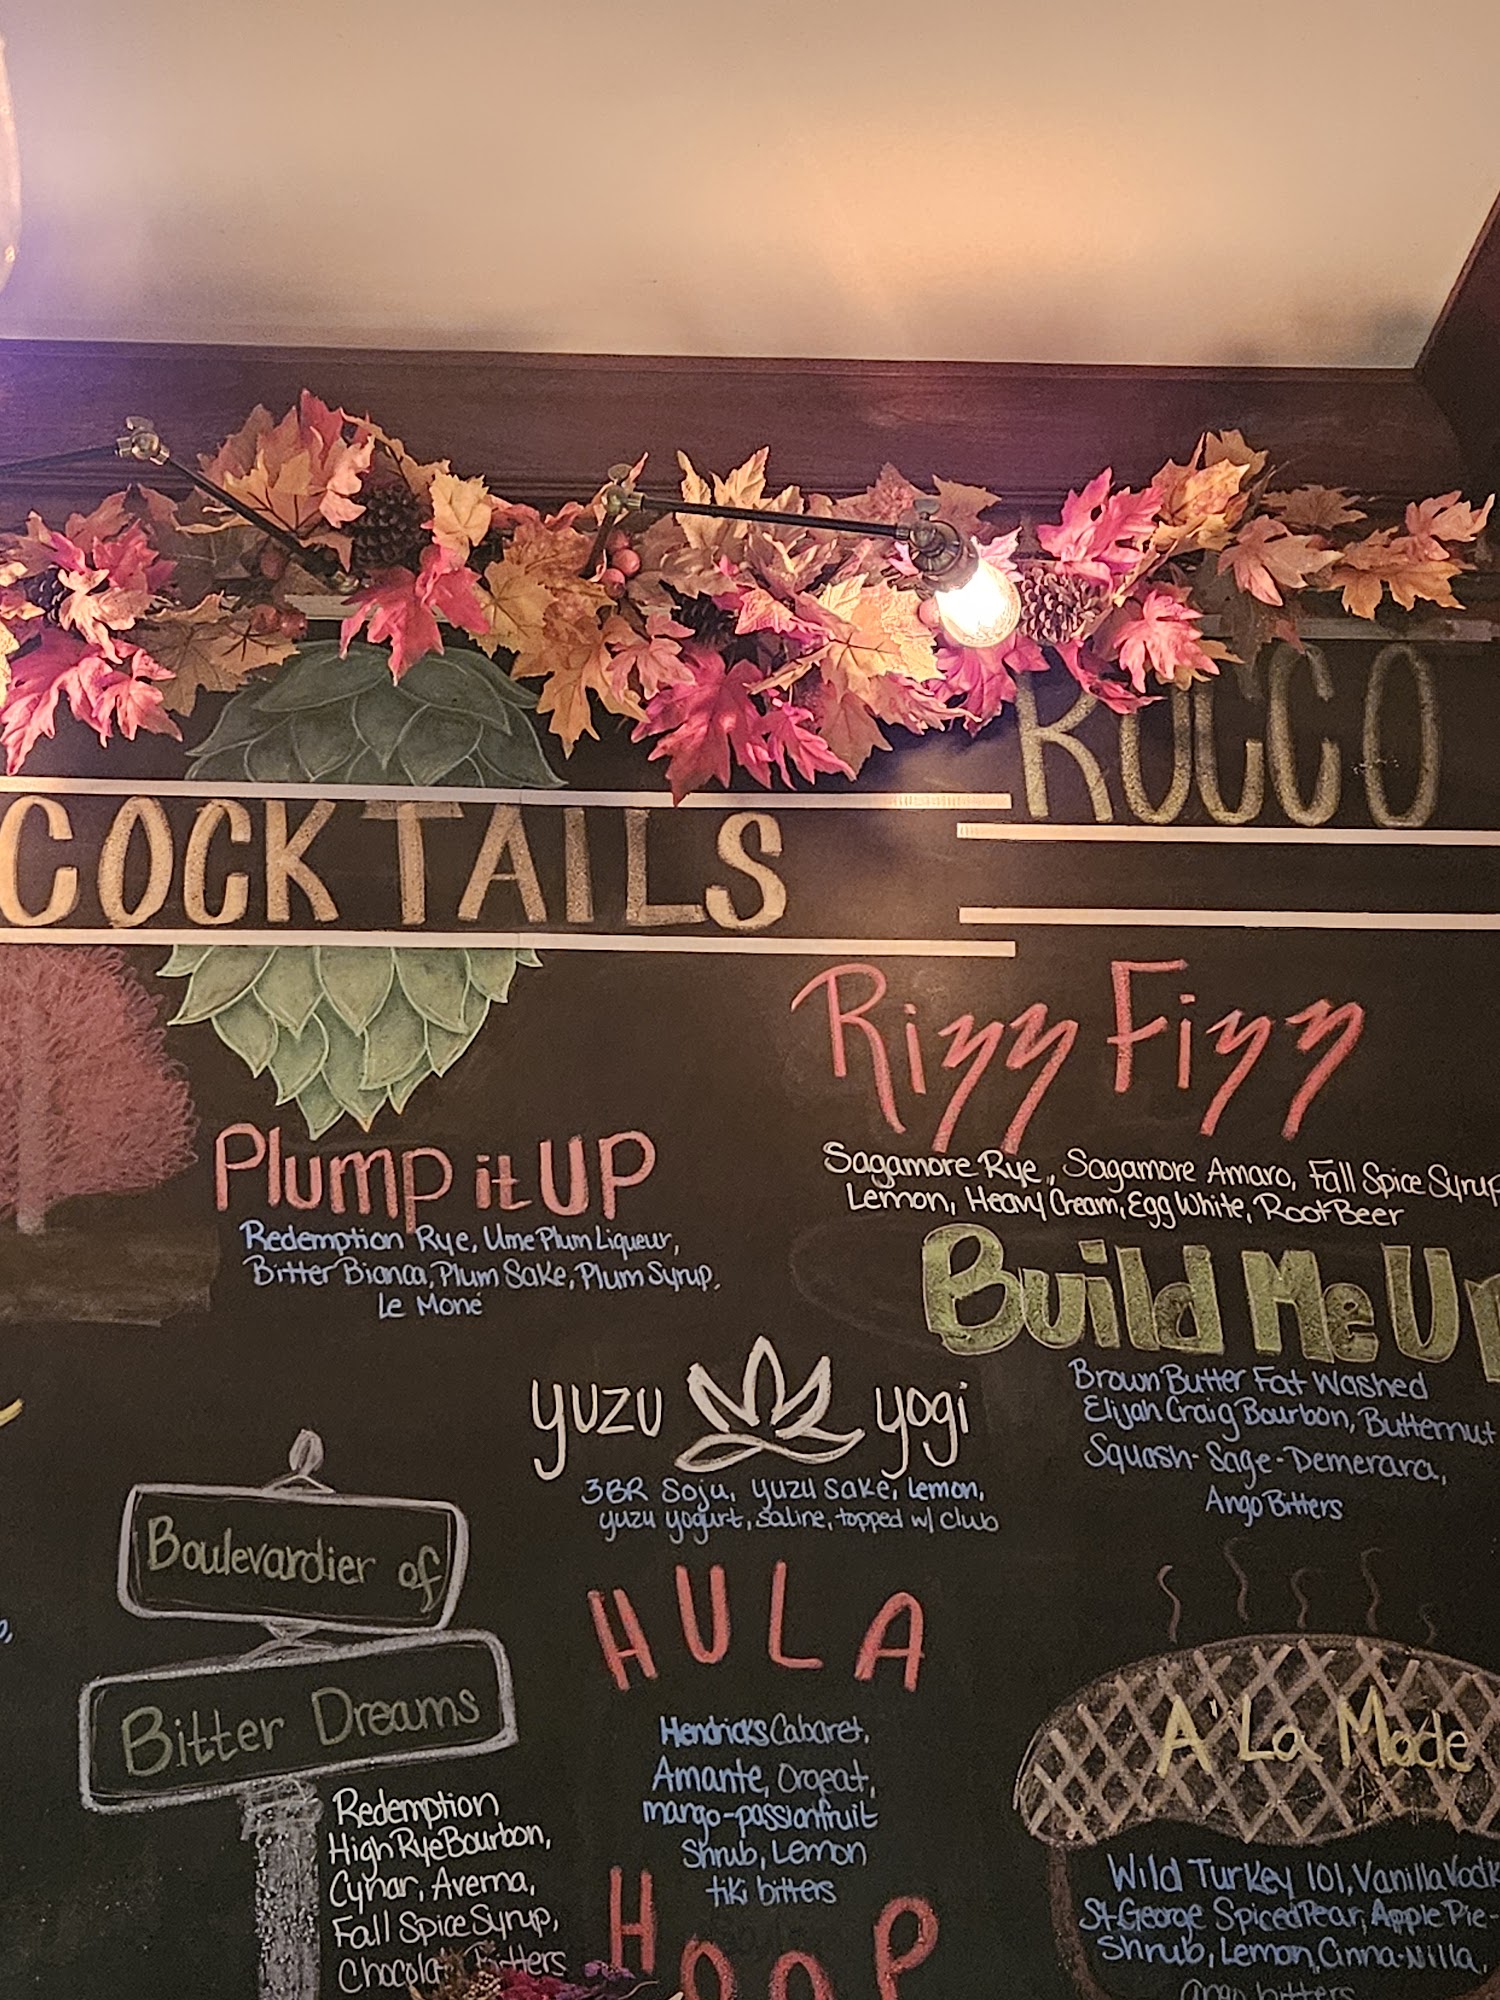 COCKTAILS
ROCCO
Plump it UP
Redemption Rye, Ume Plum Liqueur,
Bitter Bianca, Plum Sake, Plum Syrup,
Le Moné
Rizz Fizz
Sagamore Rye, Sagamore Amaro, Fall Spice Syrup
Lemon, Heavy Cream, Egg White, Root Beer
Build Me Up
Brown Butter Fat Washed
Elijah Craig Bourbon, Butternut
Squash-Sage-Demerara,
Ango Bitters
yuzu yogi
3BR Soju, yuzu sake, lemon,
yuzu yogurt, saline, topped w/ club
Boulevardier of
Bitter Dreams
Redemption
High Rye Bourbon,
Cynar, Averna,
Fall Spice Syrup,
Chocolat Bitters
HULA
Hendricks Cabaret,
Amante, Orgeat,
mango-passionfruit
Shrub, Lemon
tiki bitters
HOOP
A La Mode
Wild Turkey 101, Vanilla Vodk
St. George Spiced Pear, Apple Pie-
Shrub, Lemon, Cinna-Nilla,
Ango bitters